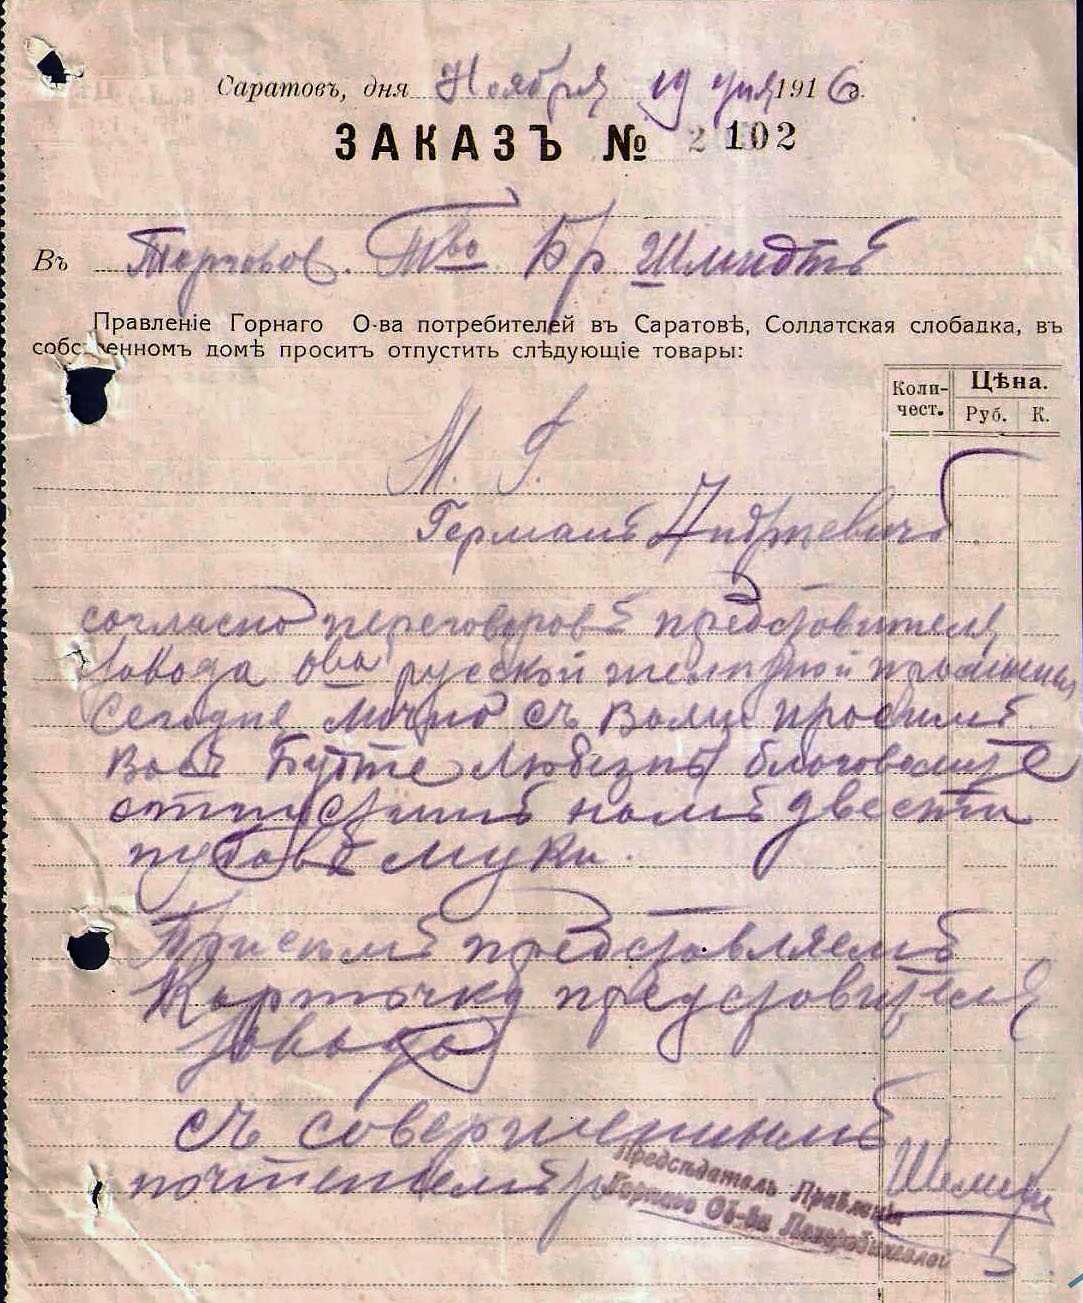 Саратовъ, дня Ноября 19 дня 1916.
ЗАКАЗЪ № 2102
Въ Торговов. Тво Бр Шмидтъ
Правленіе Горнаго О-ва потребителей въ Саратовѣ, Солдатская слободка, въ
собственномъ домѣ проситъ отпустить слѣдующіе товары:
Коли-чест. Цѣна.
Руб. К.
М. Г.
Германъ Андреевичъ
согласно переговоровъ представителя
Завода ова русской
Сегодня лично съ Вами просимъ
Васъ Будте любезны благоволите
отпустить намъ двести
пудовъ муки.
При семъ представляемъ
Карточку представителя
Завода
съ совершеннымъ
почтеніемъ
Предсѣдатель Правленія
Горнаго Об-ва Потребителей